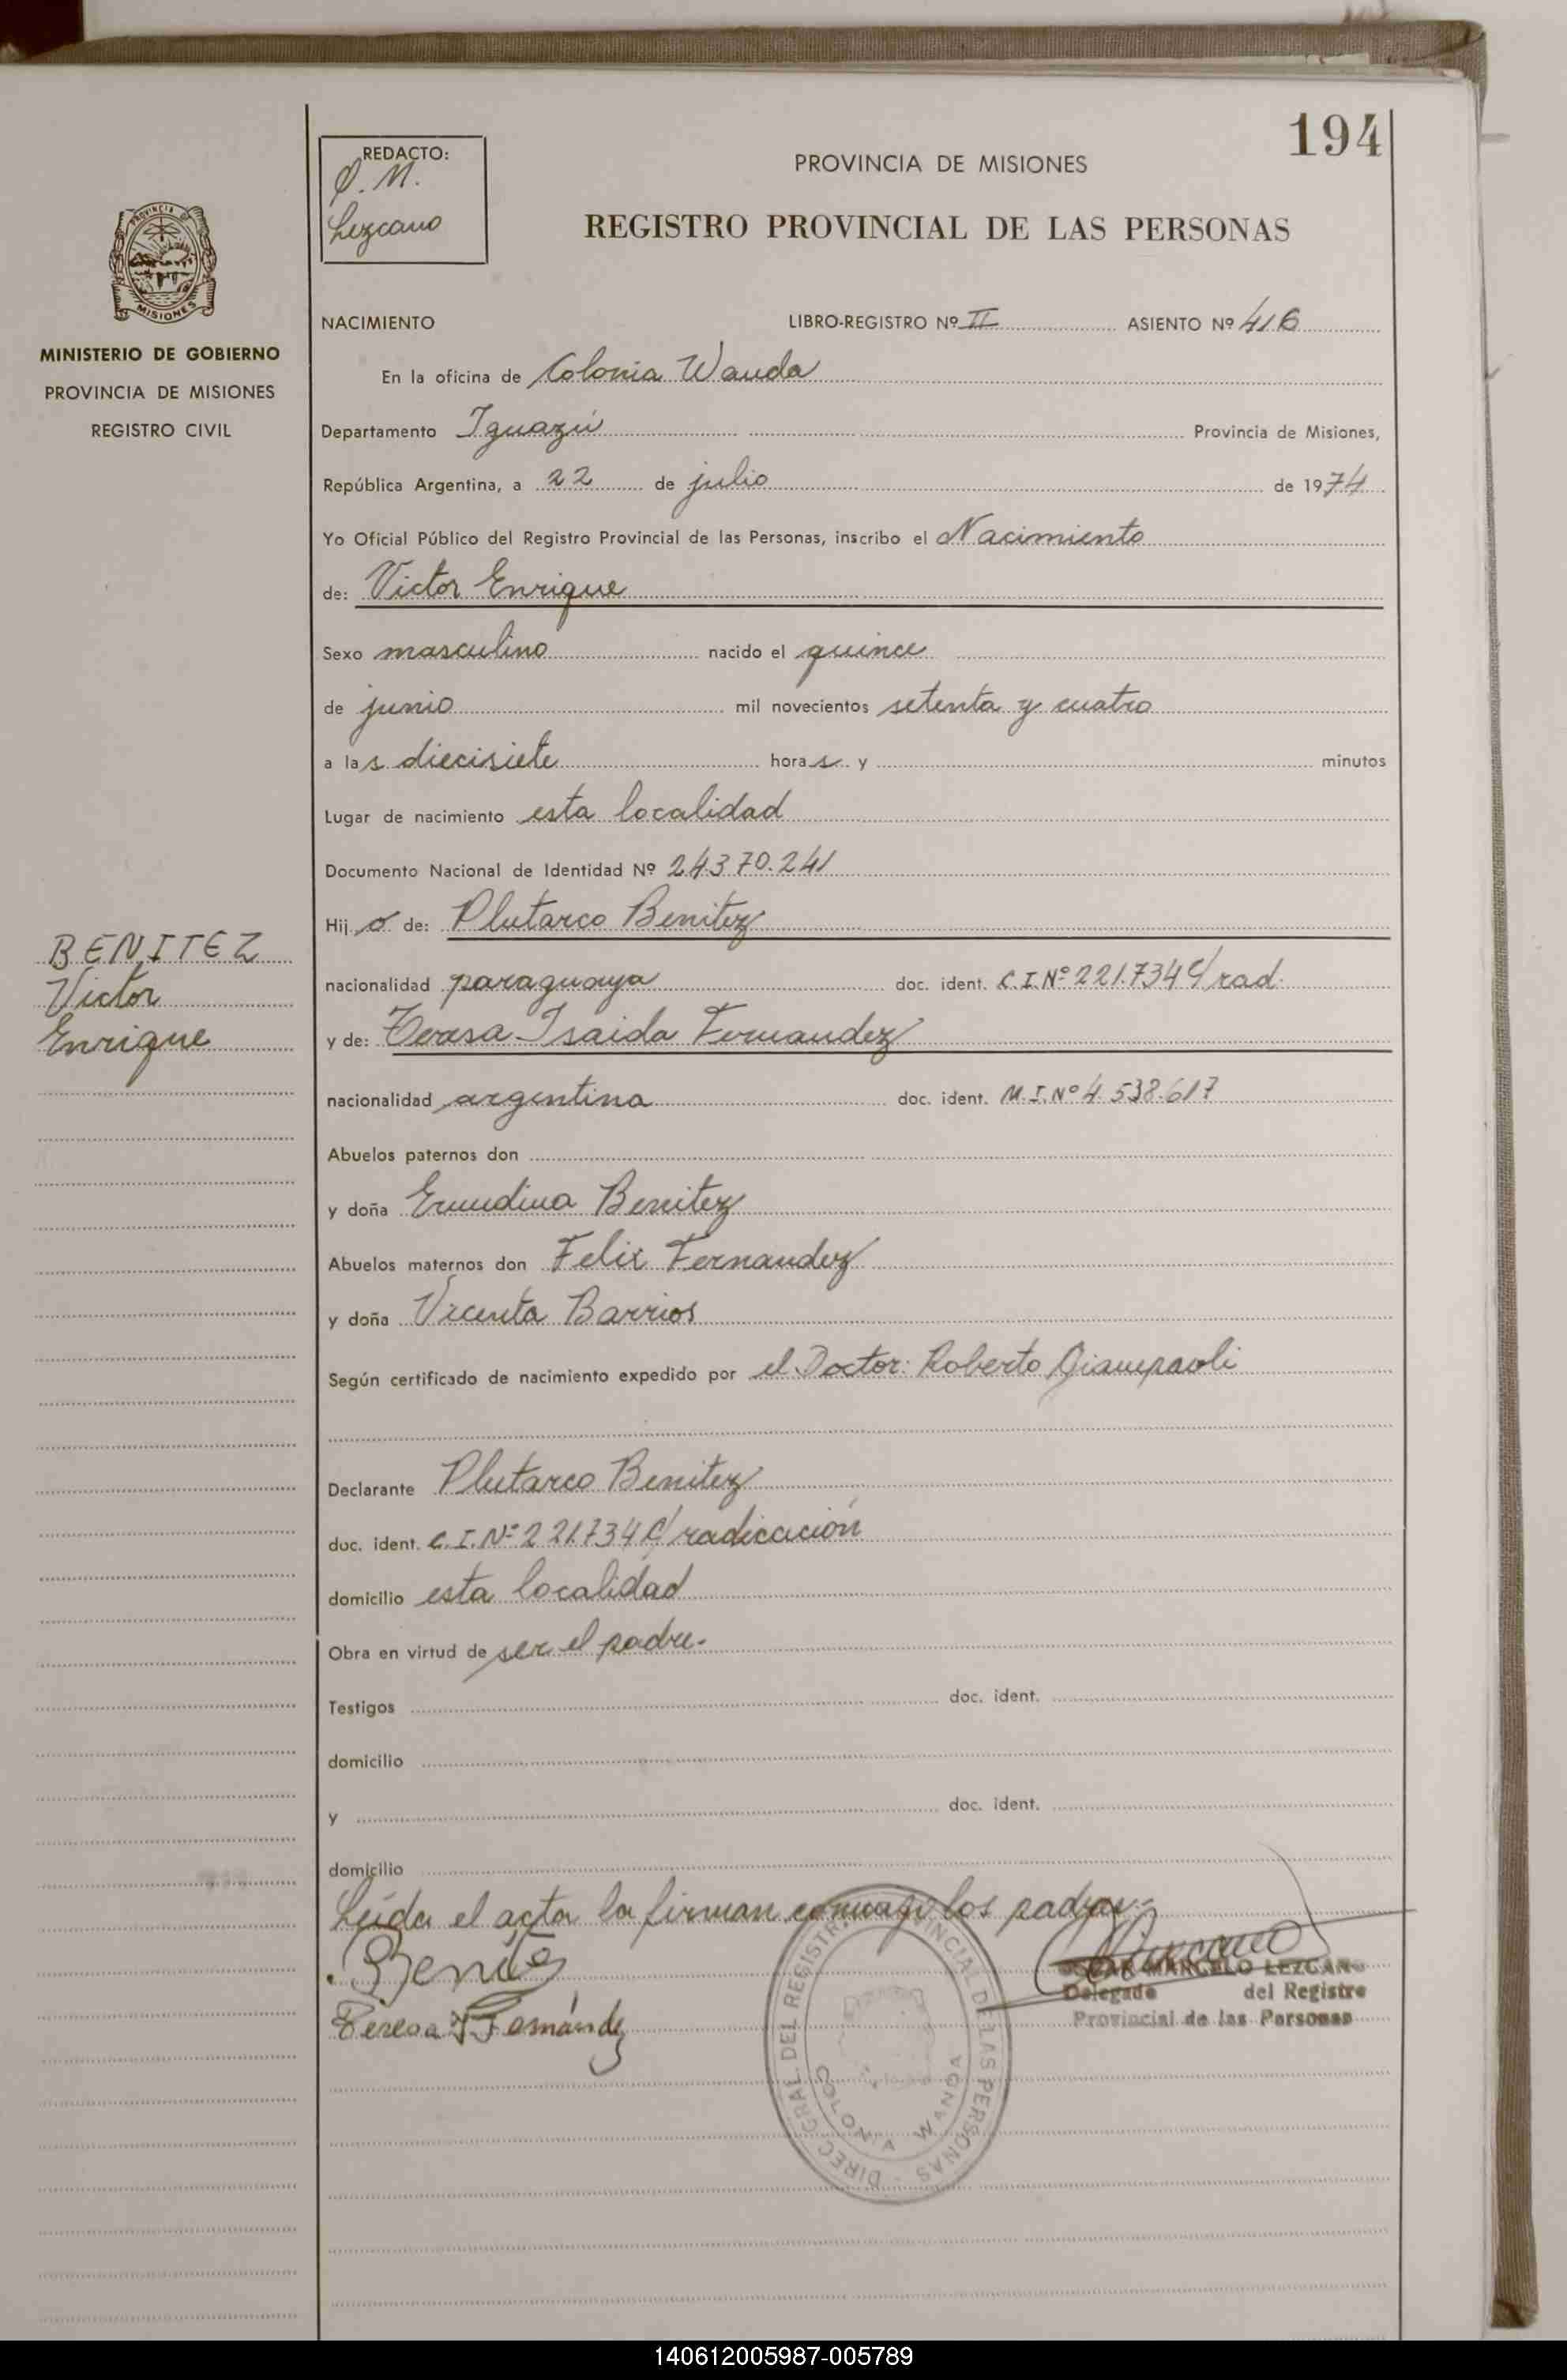 194
REDACTO:
O. M.
Lezcano
PROVINCIA DE MISIONES
REGISTRO PROVINCIAL DE LAS PERSONAS
PROVINCIA DE
MISIONES
MINISTERIO DE GOBIERNO
PROVINCIA DE MISIONES
REGISTRO CIVIL
NACIMIENTO LIBRO-REGISTRO Nº II ASIENTO Nº 416
En la oficina de Colonia Wanda
Departamento Iguazú Provincia de Misiones,
República Argentina, a 22 de julio de 1974
Yo Oficial Público del Registro Provincial de las Personas, inscribo el Nacimiento
de: Victor Enrique
Sexo masculino nacido el quince
de junio mil novecientos setenta y cuatro
a las diecisiete horas y minutos
Lugar de nacimiento esta localidad
Documento Nacional de Identidad Nº 24370.241
Hijo de: Plutarco Benitez
BENITEZ
Victor
Enrique
nacionalidad paraguaya doc. ident. C.I.Nº 221.734 C/rad.
y de: Teresa Isaida Fernandez
nacionalidad argentina doc. ident. M.I.Nº 4.538.617
Abuelos paternos don
y doña Ermudina Benitez
Abuelos maternos don Felix Fernandez
y doña Vicenta Barrios
Según certificado de nacimiento expedido por el Doctor: Roberto Giampaoli
Declarante Plutarco Benitez
doc. ident. C.I.Nº 221.734 C/radicación
domicilio esta localidad
Obra en virtud de ser el padre.
Testigos doc. ident.
domicilio
y doc. ident.
domicilio
Leída el acta la firman conmigo los padres
Benitez
Teresa I Fernández
Lezcano
OSCAR MARCELO LEZCANO
Delegado del Registro
Provincial de las Personas
DIREC. GRAL. DEL REGISTRO PROVINCIAL DE LAS PERSONAS
COLONIA WANDA
140612005987-005789